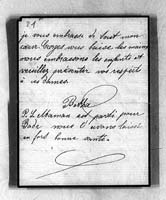 je vous embrasse de tout mon
cœur Georges vous baise les mains
nous embrassons les enfants et
veuillez présenter nos respects
à ces Dames.
Bertha
P.S. Maman est partie pour
Bade nous l'avons laissé
en fort bonne santé.